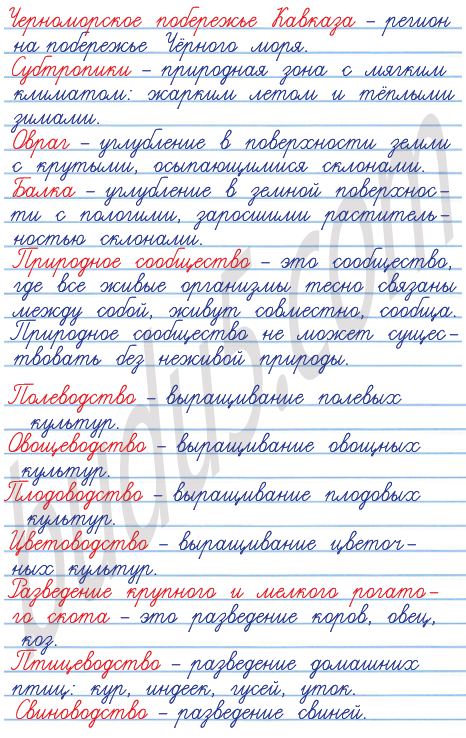 Черноморское побережье Кавказа – регион
на побережье Чёрного моря.
Субтропики – природная зона с мягким
климатом: жарким летом и тёплыми
зимами.
Овраг – углубление в поверхности земли
с крутыми, осыпающимися склонами.
Балка – углубление в земной поверхнос-
ти с пологими, заросшими раститель-
ностью склонами.
Природное сообщество – это сообщество,
где все живые организмы тесно связаны
между собой, живут совместно, сообща.
Природное сообщество не может сущес-
твовать без неживой природы.
Полеводство – выращивание полевых
культур.
Овощеводство – выращивание овощных
культур.
Плодоводство – выращивание плодовых
культур.
Цветоводство – выращивание цветоч-
ных культур.
Разведение крупного и мелкого рогато-
го скота – это разведение коров, овец,
коз.
Птицеводство – разведение домашних
птиц: кур, индеек, гусей, уток.
Свиноводство – разведение свиней.
budu5.com